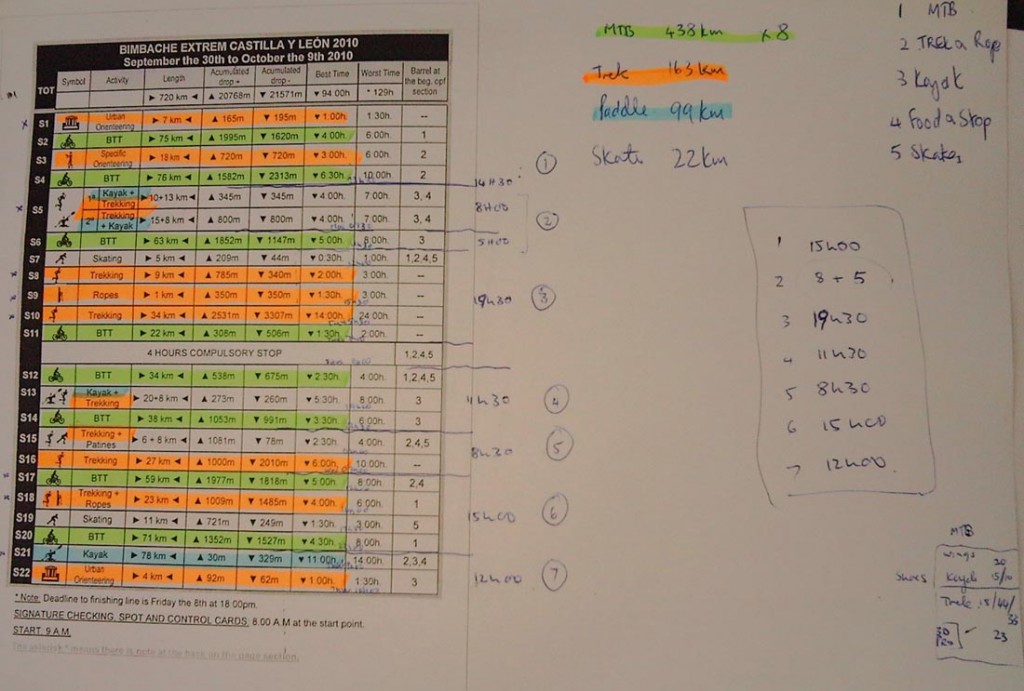 BIMBACHE EXTREM CASTILLA Y LEÓN 2010
September the 30th to October the 9th 2010
TOT Symbol Activity Length Acumulated drop + Acumulated drop - Best Time Worst Time Barrel at the beg. opf section
► 720 km ◄ ▲ 20768m ▼ 21571m ▼ 94:00h * 129h
S1 Urban Orienteering ► 7 km ◄ ▲ 165m ▼ 195m ▼ 1:00h. 1:30h. --
S2 BTT ► 75 km ◄ ▲ 1995m ▼ 1620m ▼ 4:00h. 6:00h. 1
S3 Specific Orienteering ► 18 km ◄ ▲ 720m ▼ 720m ▼ 3:00h. 6:00h. 2
S4 BTT ► 76 km ◄ ▲ 1582m ▼ 2313m ▼ 6:30h. 10:00h. 2
S5 1º Kayak + Trekking ► 10+13 km ◄ ▲ 345m ▼ 345m ▼ 4:00h. 7:00h. 3, 4
2º Trekking + Kayak ► 15+8 km ◄ ▲ 800m ▼ 800m ▼ 4:00h. 7:00h. 3, 4
S6 BTT ► 63 km ◄ ▲ 1852m ▼ 1147m ▼ 5:00h. 8:00h. 3
S7 Skating ► 5 km ◄ ▲ 209m ▼ 44m ▼ 0:30h. 1:00h. 1,2,4,5
S8 Trekking ► 9 km ◄ ▲ 785m ▼ 340m ▼ 2:00h. 3:00h. --
S9 Ropes ► 1 km ◄ ▲ 350m ▼ 350m ▼ 1:30h. 3:00h. --
S10 Trekking ► 34 km ◄ ▲ 2531m ▼ 3307m ▼ 14:00h. 24:00h. --
S11 BTT ► 22 km ◄ ▲ 306m ▼ 506m ▼ 1:30h. 2:00h. --
4 HOURS COMPULSORY STOP 1,2,4,5
S12 BTT ► 34 km ◄ ▲ 538m ▼ 675m ▼ 2:30h. 4:00h. 1,2,4,5
S13 Kayak + Trekking ► 20+8 km ◄ ▲ 273m ▼ 260m ▼ 5:30h. 8:00h. 3
S14 BTT ► 38 km ◄ ▲ 1053m ▼ 991m ▼ 3:30h. 6:00h. 3
S15 Trekking + Patines ► 6 + 6 km ◄ ▲ 1081m ▼ 78m ▼ 2:30h. 4:00h. 2,4,5
S16 Trekking ► 27 km ◄ ▲ 1000m ▼ 2010m ▼ 6:00h. 10:00h. --
S17 BTT ► 59 km ◄ ▲ 1977m ▼ 1818m ▼ 5:00h. 8:00h. 2,4
S18 Trekking + Ropes ► 23 km ◄ ▲ 1009m ▼ 1485m ▼ 4:00h. 6:00h. 1
S19 Skating ► 11 km ◄ ▲ 721m ▼ 249m ▼ 1:30h. 3:00h. 5
S20 BTT ► 71 km ◄ ▲ 1352m ▼ 1527m ▼ 4:30h. 8:00h. 1
S21 Kayak ► 78 km ◄ ▲ 30m ▼ 329m ▼ 11:00h. 14:00h. 2,3,4
S22 Urban Orienteering ► 4 km ◄ ▲ 92m ▼ 62m ▼ 1:00h. 1:30h. 3
* Note: Deadline to finishing line is Friday the 8th at 18:00pm.
SIGNATURE CHECKING, SPOT AND CONTROL CARDS: 8:00 A.M at the start point.
START: 9 A.M.
14H30 1
8H00 2
5H00
19H30 3
11H30 4
8H30 5
15H00 6
12H00 7
MTB 438km x8
Trek 163km
Paddle 99km
Skate 22km
1 MTB
2 TREK a Rope
3 Kayak
4 Food a Stop
5 Skates
1 15H00
2 8 + 5
3 19H30
4 11H30
5 8H30
6 15H00
7 12H00
MTB
wings 20
Shoes Kayak 15/
Trek 15/44/
23